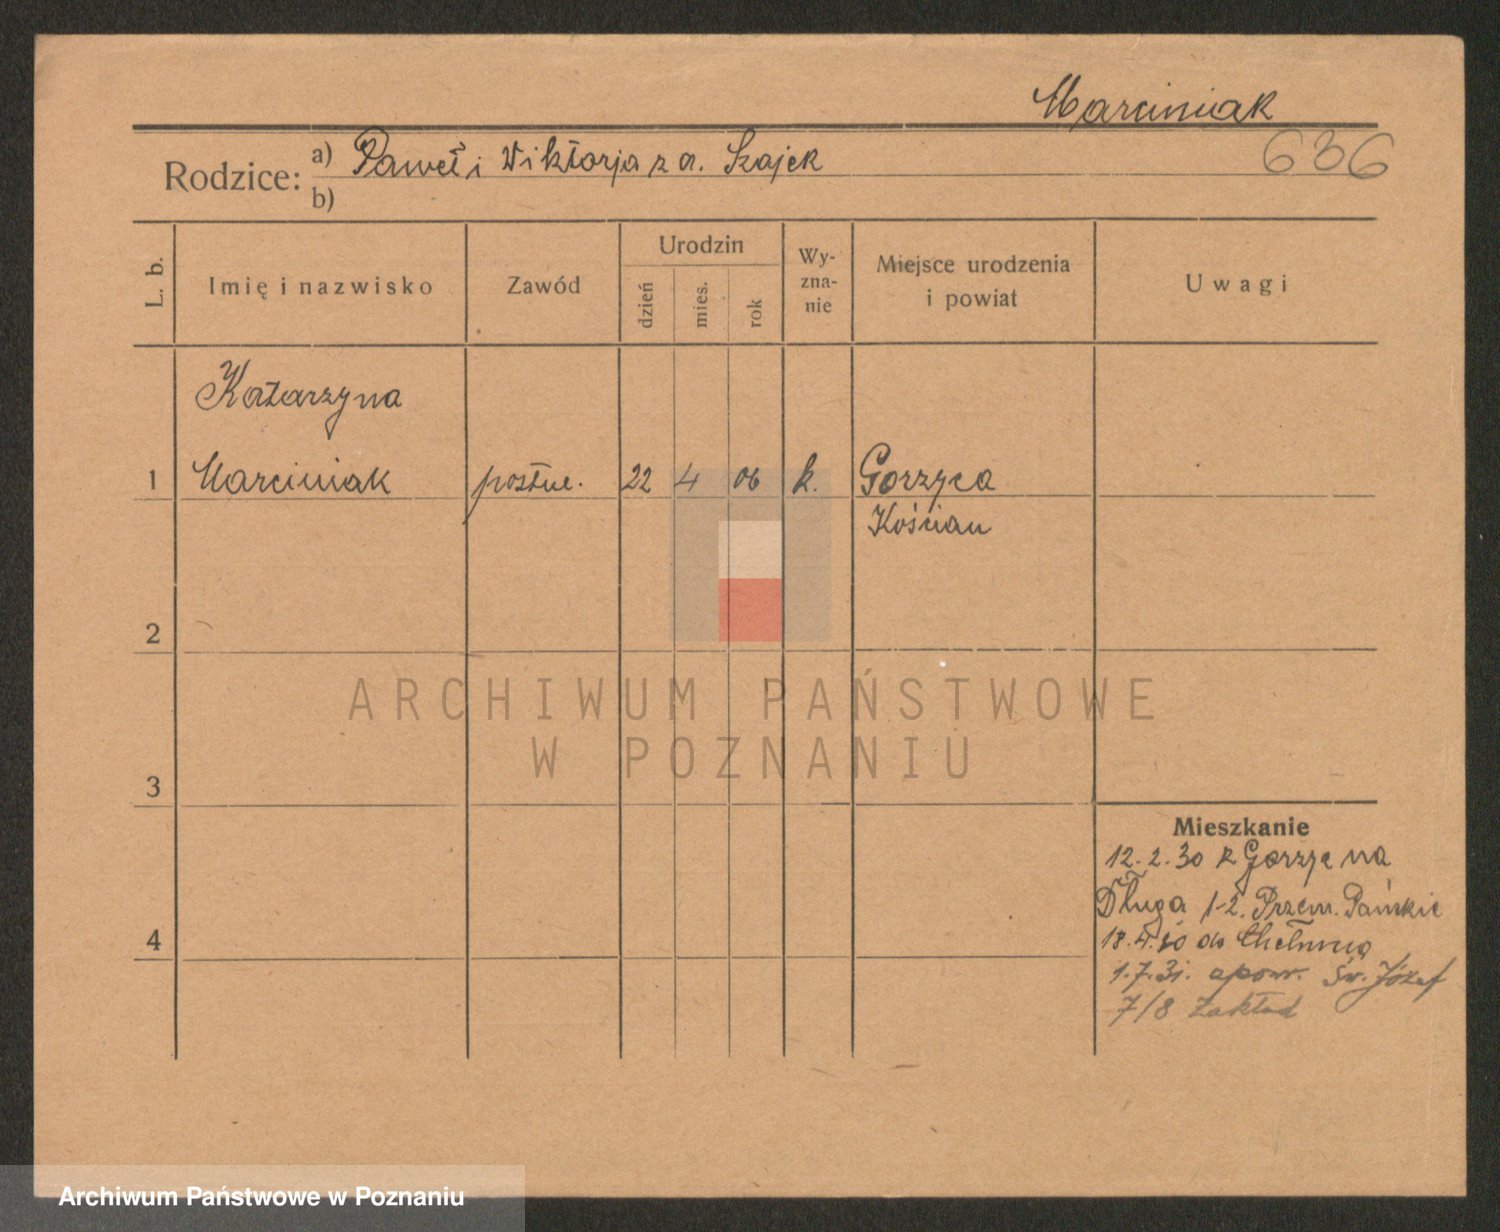 Marciniak
636
Rodzice: a) Paweł i Wiktorja z d. Szajek
b)
L. b.
Imię i nazwisko
Zawód
Urodzin
dzień
mies.
rok
Wy-
zna-
nie
Miejsce urodzenia
i powiat
Uwagi
Katarzyna
1 Marciniak posłue. 22 4 06 k. Gorzyca
Kościan
2
3
4
Mieszkanie
12.2.30 z Gorzyc na
Długa 1-2. Przem. Pańskie
18.4.30 do Chełmna
1.7.31. apow. Św. Józef
7/8 Zakład
ARCHIWUM PAŃSTWOWE
W POZNANIU
Archiwum Państwowe w Poznaniu